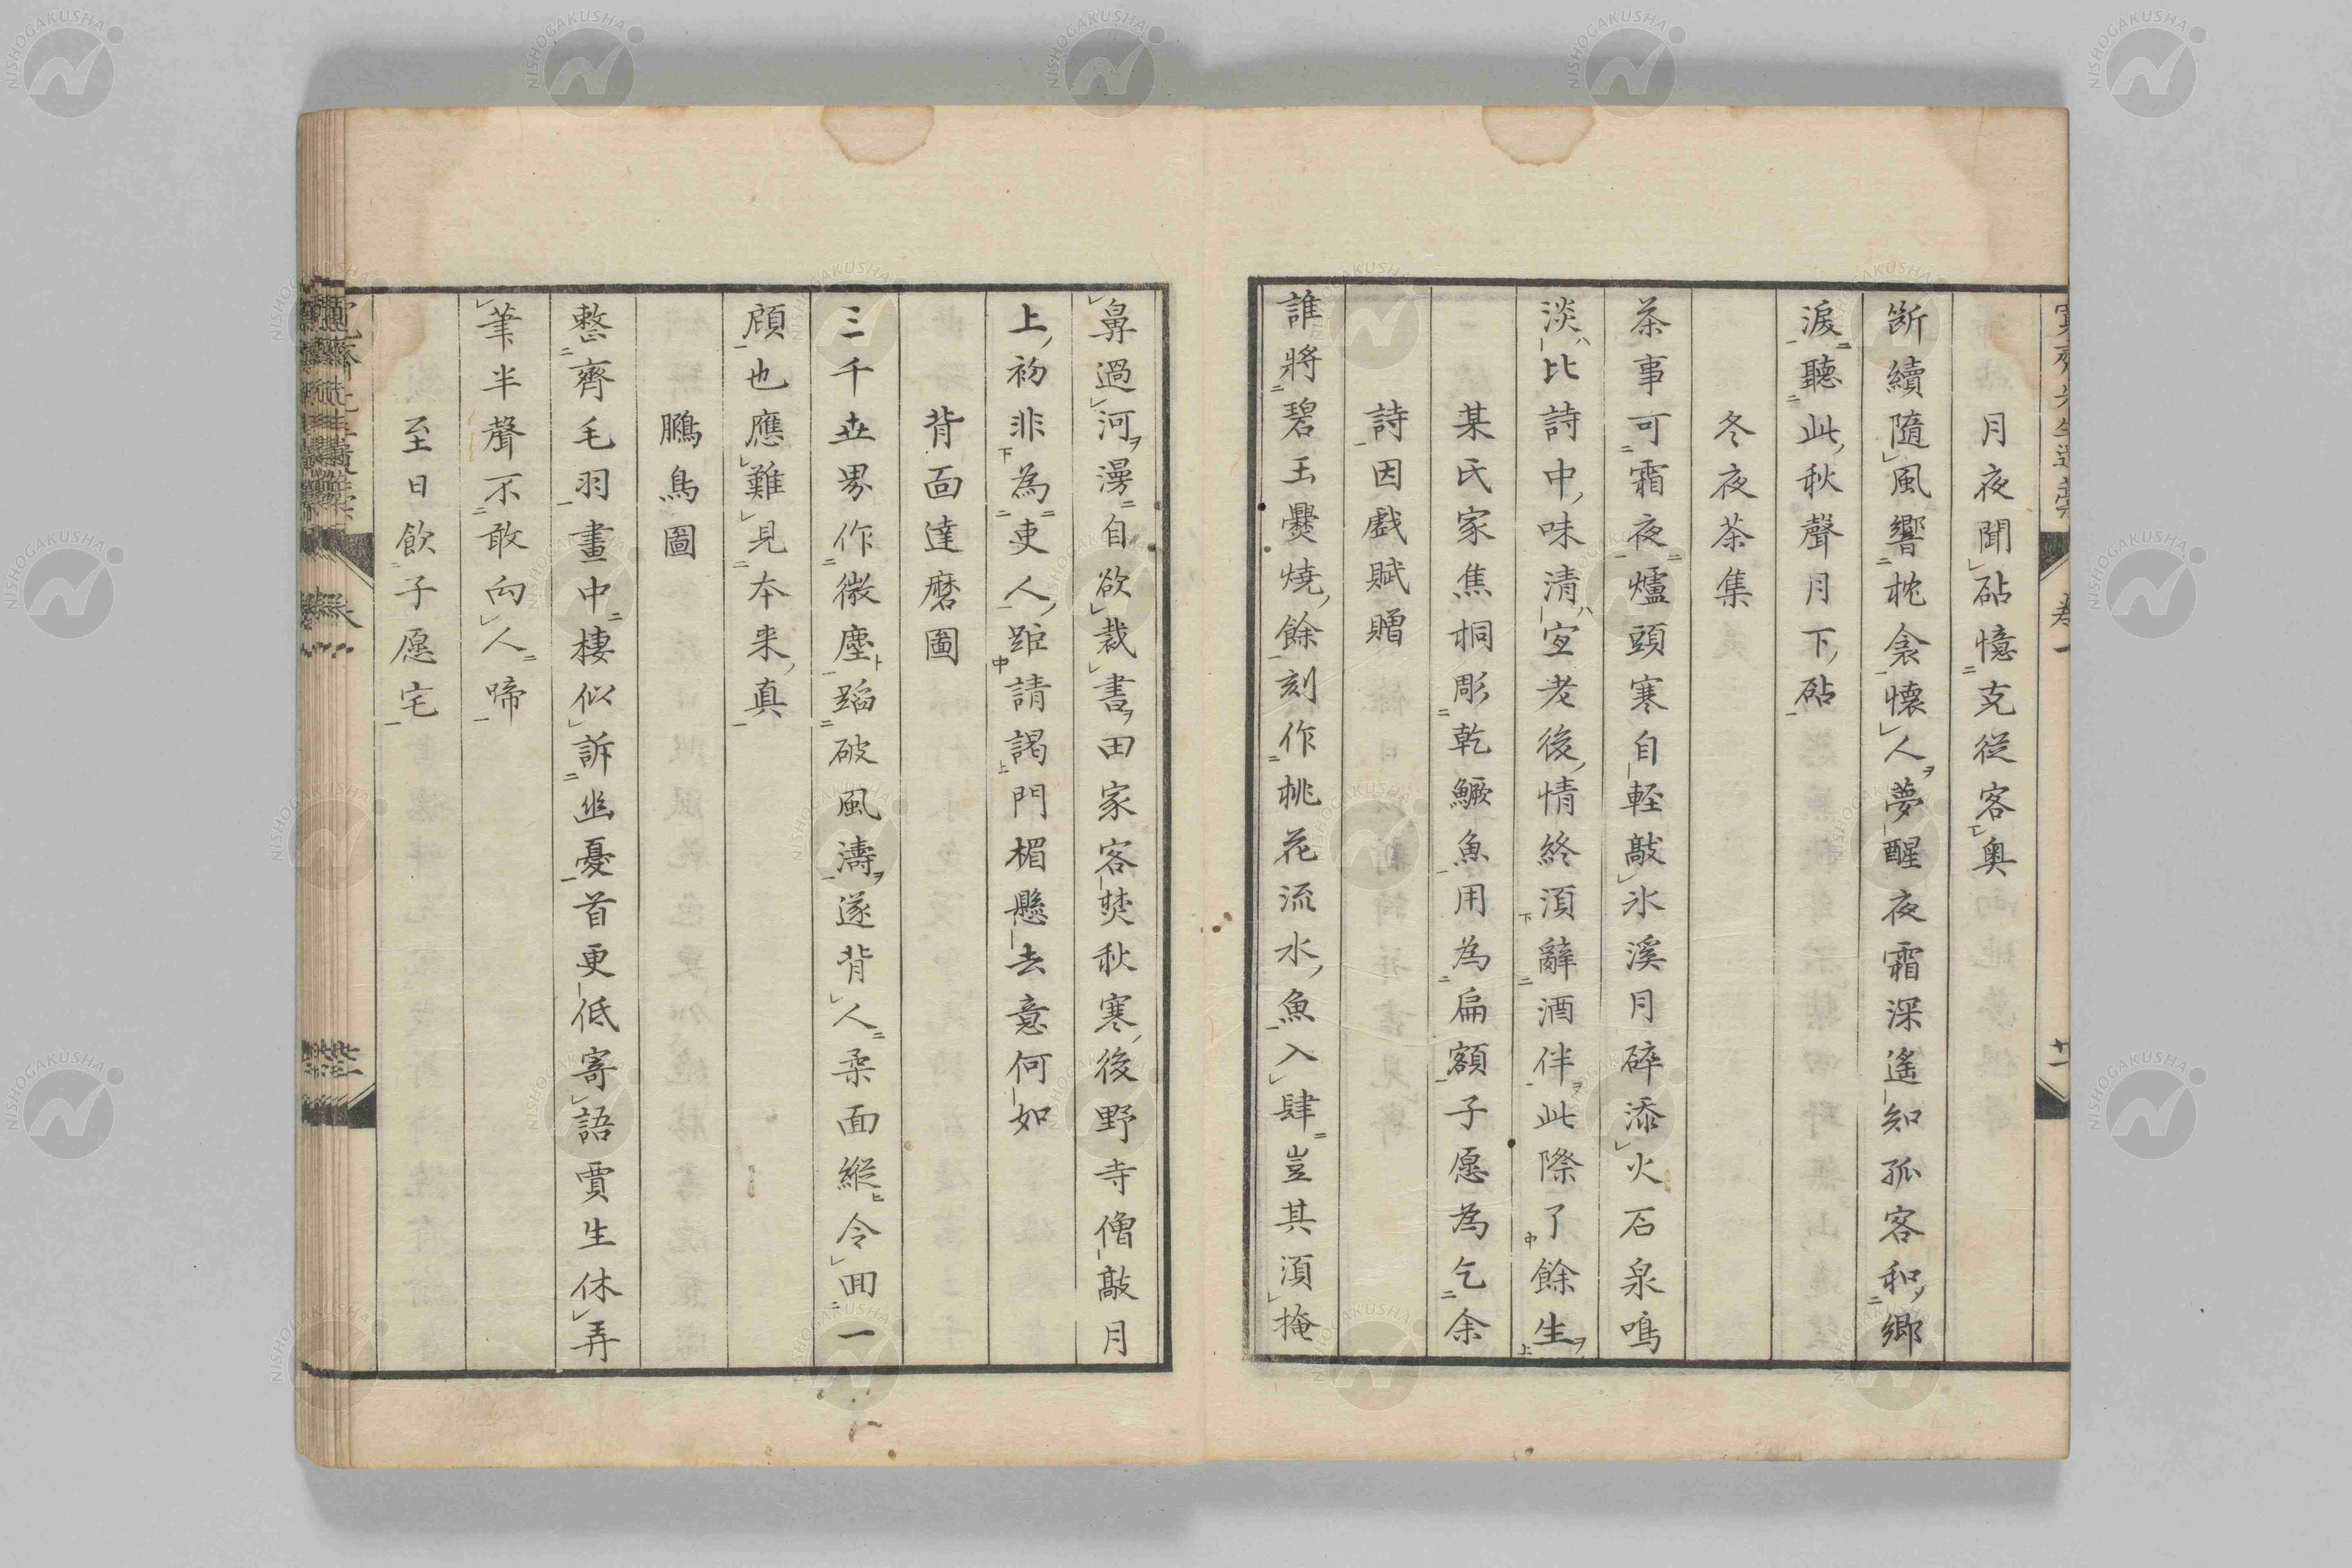 月夜聞砧憶克從客奧
斷續隨風響枕衾懷人夢醒夜霜深遙知孤客和鄉
淚聽此秋聲月下砧
冬夜茶集
茶事可霜夜爐頭寒自輕敲氷溪月碎添火石泉鳴
淡比詩中味清宜老後情終須辭酒伴此際了餘生
某氏家焦桐彫乾鱖魚用為扁額子愿為乞余
詩因戲賦贈
誰將碧玉爨燒餘刻作桃花流水魚入肆豈其須掩
鼻過河漫自欲裁書田家客焚秋寒後野寺僧敲月
上初非為吏人距請謁門楣懸去意何如
背面達磨圖
三千世界作微塵蹈破風濤遂背人柔面縱令回一
顧也應難見本来真
鵩鳥圖
整齊毛羽畫中棲似訴幽憂首更低寄語賈生休弄
筆半聲不敢向人啼
至日飲子愿宅